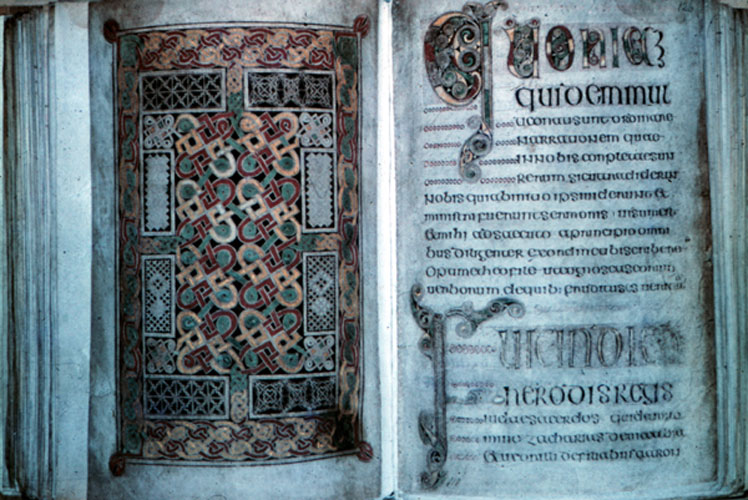 QUONIAM
quidem mul
ti conati sunt ordinare
narrationem quae
in nobis completae sun
rerum sicut tradiderun
nobis qui ab initio ipsi uiderunt &
ministri fuerunt sermonis uisum est
& mihi adsecuto a principio omni
bus diligenter ex ordine tibi scribere
optime theofile ut cognoscas eorum
uerborum de quibus eruditus es ueritat
FUIT IN DIE
HERODIS REGIS
iudae sacerdos quidam
nomine zacharias de
& uxor illi de filiabus aaron